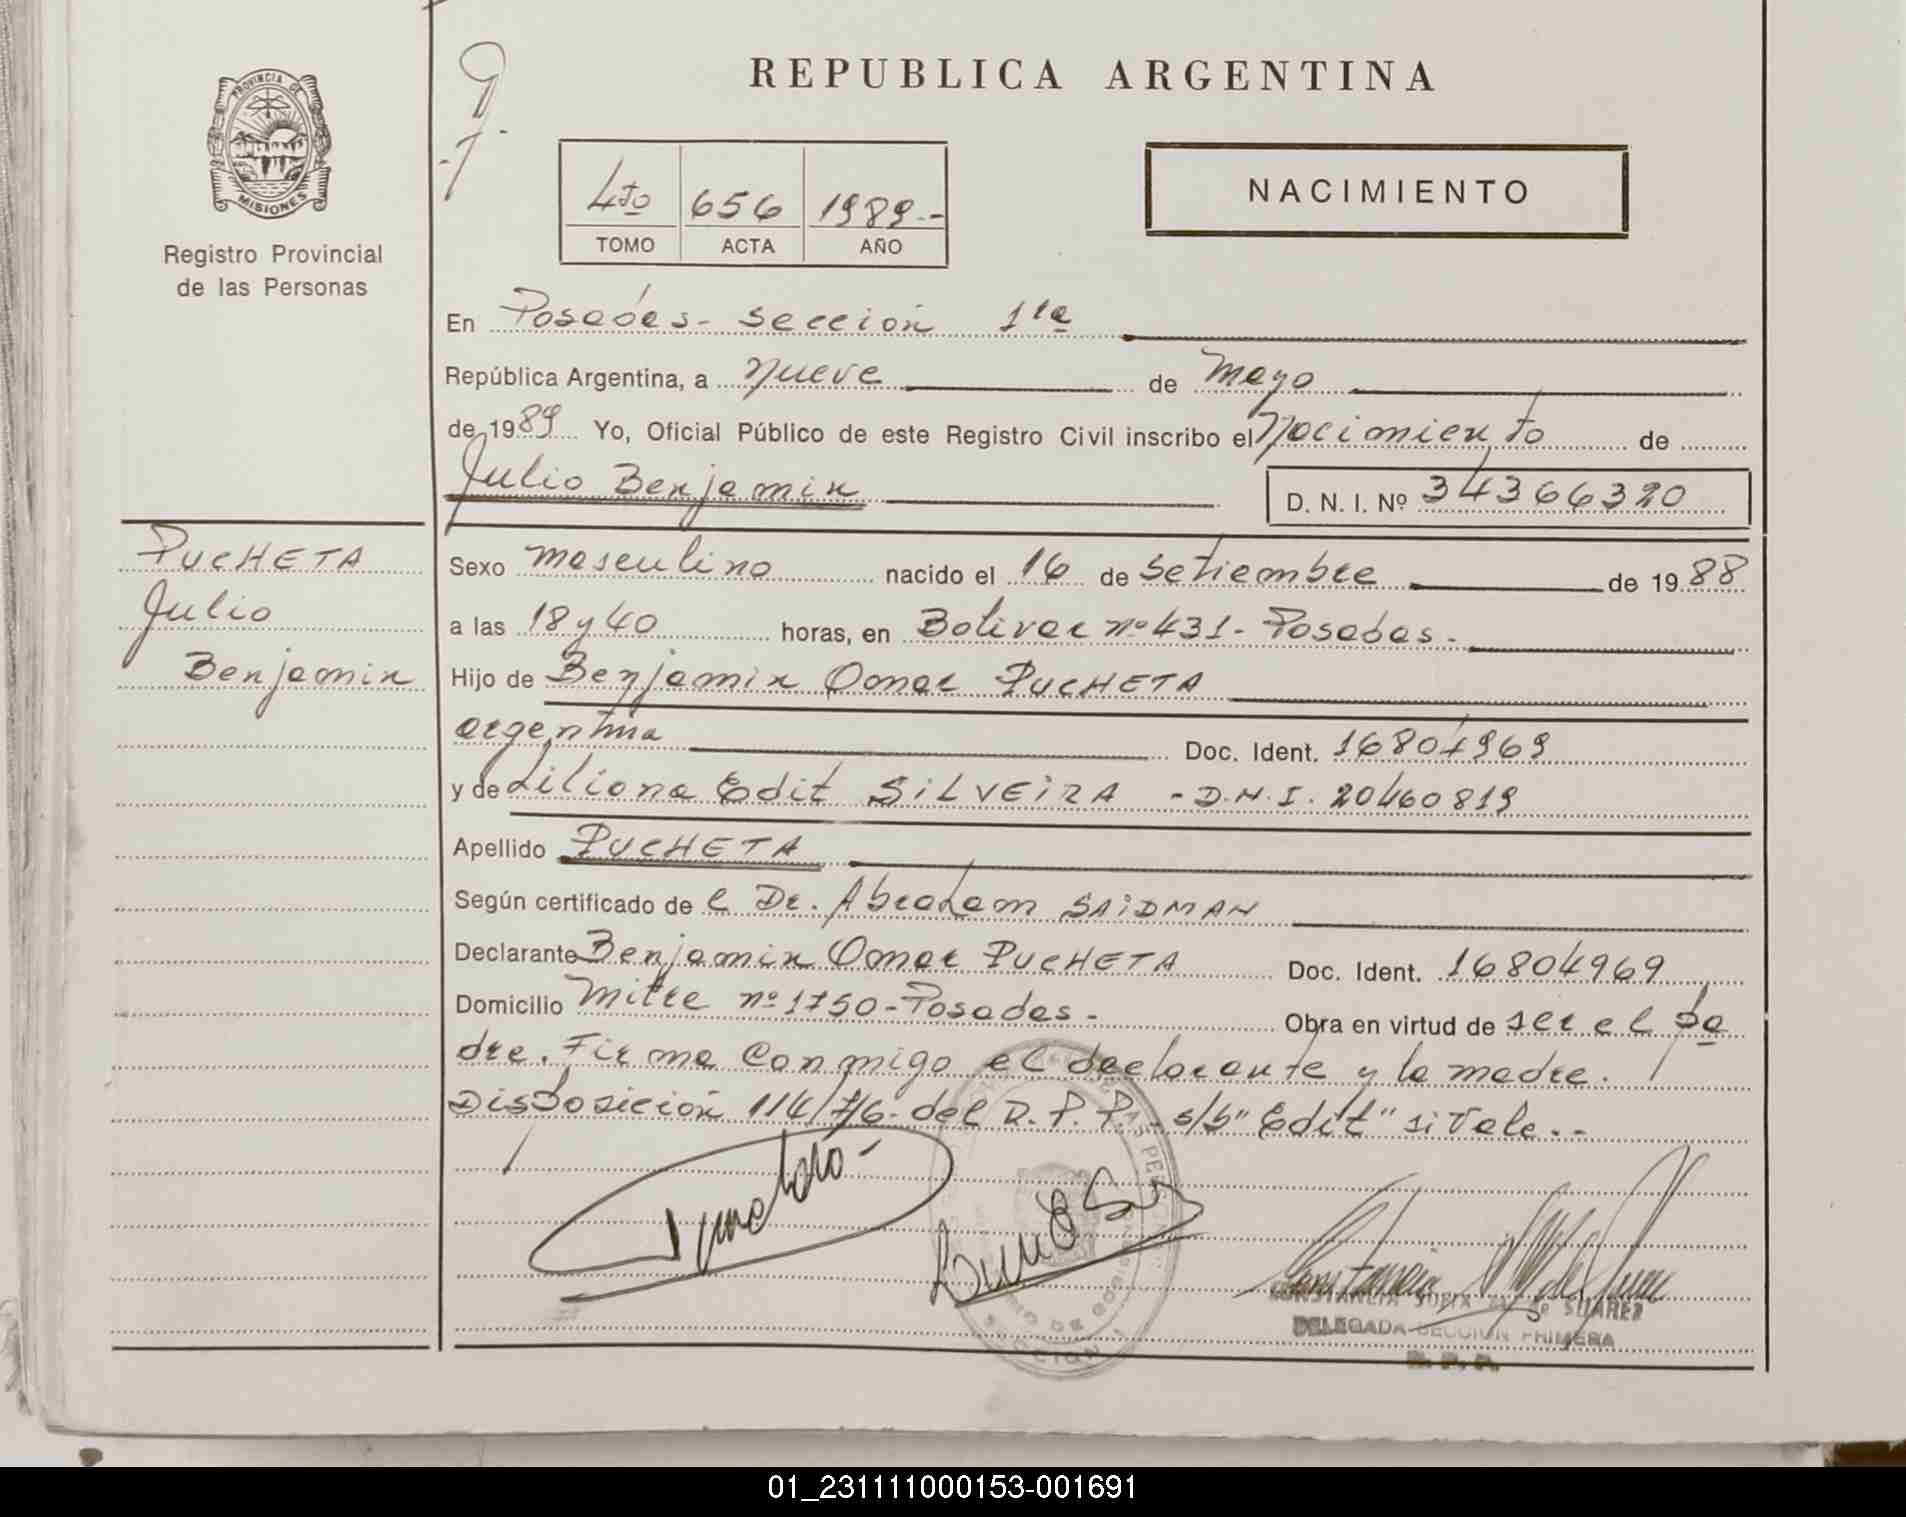 REPUBLICA ARGENTINA
PROVINCIA DE
MISIONES
Registro Provincial
de las Personas
4to 656 1989.-
TOMO ACTA AÑO
NACIMIENTO
En Posadas - sección 1ra
República Argentina, a nueve de mayo
de 1989 Yo, Oficial Público de este Registro Civil inscribo el Nacimiento de
Julio Benjamin D. N. I. Nº 34366320
PUCHETA
Julio
Benjamin
Sexo masculino nacido el 16 de setiembre de 1988
a las 18 y 40 horas, en Bolivar nº 431 - Posadas -
Hijo de Benjamin Omar PUCHETA
argentina Doc. Ident. 16804969
y de Liliana Edit SILVEIRA - D.N.I. 20460819
Apellido PUCHETA
Según certificado de l Dr. Abraham SAIDMAN
Declarante Benjamin Omar PUCHETA Doc. Ident. 16804969
Domicilio Mitre nº 1750 - Posadas - Obra en virtud de ser el pa
dre. Firma conmigo el declarante y la madre.
Disposición 114/76 - del R.P.P. - s/b "Edit" si vale.-
DELEGADA SECCION PRIMERA
R. P. P.
01_231111000153-001691